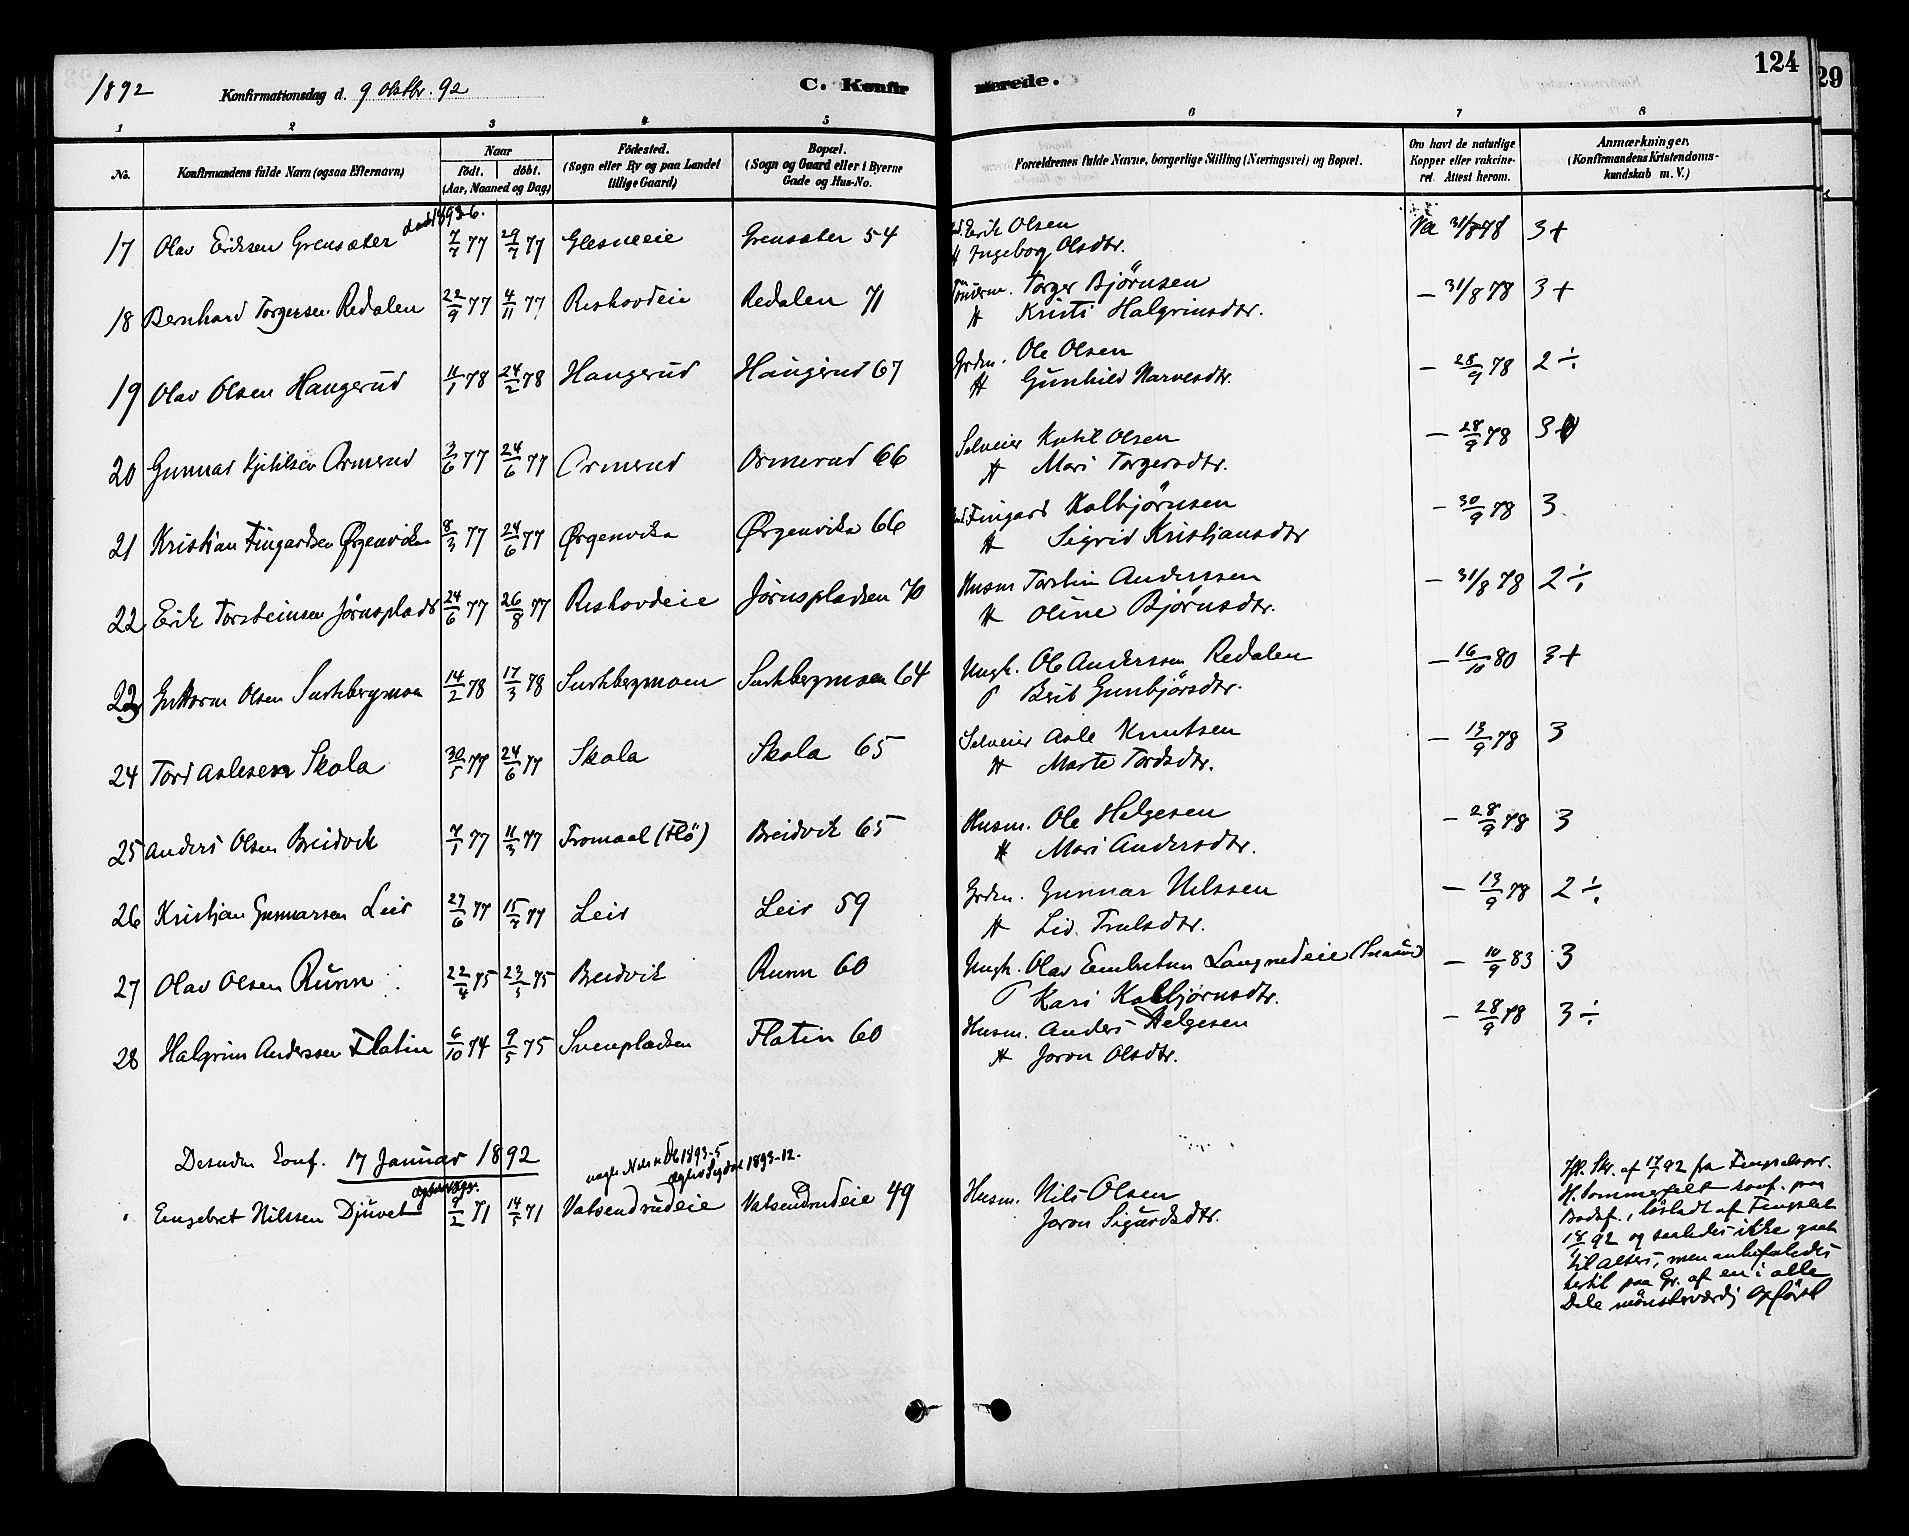 1892 Konfirmationsdag d. 9 Oktbr. 92 C. Konfirmerede. 124
29
1 2 3 4 5 6 7 8
No. Konfirmandens fulde Navn (ogsaa Efternavn) Naar født. døbt. (Aar, Maaned og Dag) Fødested. (Sogn eller By og paa Landet tillige Gaard) Bopæl. (Sogn og Gaard eller i Byerne Gade og Hus-No. Forældrenes fulde Navne, borgerlige Stilling (Næringsvei) og Bopæl. Om havt de naturlige Kopper eller vakcineret. Attest herom. Anmærkninger. (Konfirmandens Kristendomskundskab m. V.)
17 Olav Eriksen Grensæter 7/7 77 29/7 77 Glesneeie Grensæter 54 Erik Olsen Va 31/8 78 3+
H Ingeborg Olsdtr.
18 Bernhard Torgersen Redalen 22/9 77 4/11 77 Reshovdeie Redalen 71 Torger Bjørnsen – 31/8 78 3+
H Kristi Halgrimsdtr.
19 Olav Olsen Haugerud 11/1 78 24/2 78 Haugerud Haugerud 67 Grdm. Ole Olsen – 28/9 78 2 ÷
H Gunhild Narvesdtr.
20 Gunnar Kjetilsen Ormerud 3/6 77 24/6 77 Ormerud Ormerud 66 Selveier Ketil Olsen – 28/9 78 3
H Mari Torgersdtr.
21 Kristian Fingardsen Ørgenviken 8/3 77 24/6 77 Ørgenvika Ørgenvika 66 Fingard Kolbjørnsen – 30/9 78 3
H Sigrid Kristiansdtr
22 Erik Torsteinsen Jørnsplads 24/6 77 26/8 77 Reshovdeie Jørnspladsen 70 Husm Torstein Anderssen – 31/8 78 2 ÷
H Oline Bjørnsdtr.
23 Guttorm Olsen Surkbergmoen 14/2 78 17/3 78 Surkbergmoen Surkbergmoen 64 Ungk. Ole Anderssen Redalen – 16/10 80 3+
P Berit Gunbjørsdtr.
24 Tord Aslesen Skola 30/5 77 24/6 77 Skola Skola 65 Selveier Asle Knutsen – 13/9 78 3
H Marte Tordsdtr.
25 Anders Olsen Breidvik 7/1 77 11/3 77 Fromaal (Flø) Breidvik 65 Husm. Ole Helgesen – 28/9 78 3
H Mari Andersdtr.
26 Kristian Gunnarsen Leir 27/6 77 15/7 77 Leir Leir 59 Grdm. Gunnar Nilssen – 13/9 78 2 ÷
H Liv. Trulsdtr.
27 Olav Olsen Runn 22/4 75 23/5 75 Breidvik Runn 60 Ungk. Olav Embretsen Langnedeie – 10/9 83 3
P Kari Kolbjørnsdtr.
28 Halgrim Anderssen Flatin 6/10 74 9/5 75 Svenpladsen Flatin 60 Husm. Anders Helgesen – 28/9 78 3 ÷
H Joron Olsdtr.
Desuden konf. 17 Januar 1892
Engebret Nilssen Djuvet 9/2 71 14/5 71 Vatsendrudeie Vatsendrudeie 49 Husm. Nils Olsen
Joron Sigurdsdtr.
Ifl. Skr. af 17/1 92 fra Fengselspr.
H. Sommerfelt konf. paa
Bodsf., løsladt af Fengslet
18/1 92 og saaledes ikke gaat
til alters, men anbefaledes
dertil paa Gr. af en i alle
Dele mønsterværdig Opførsel